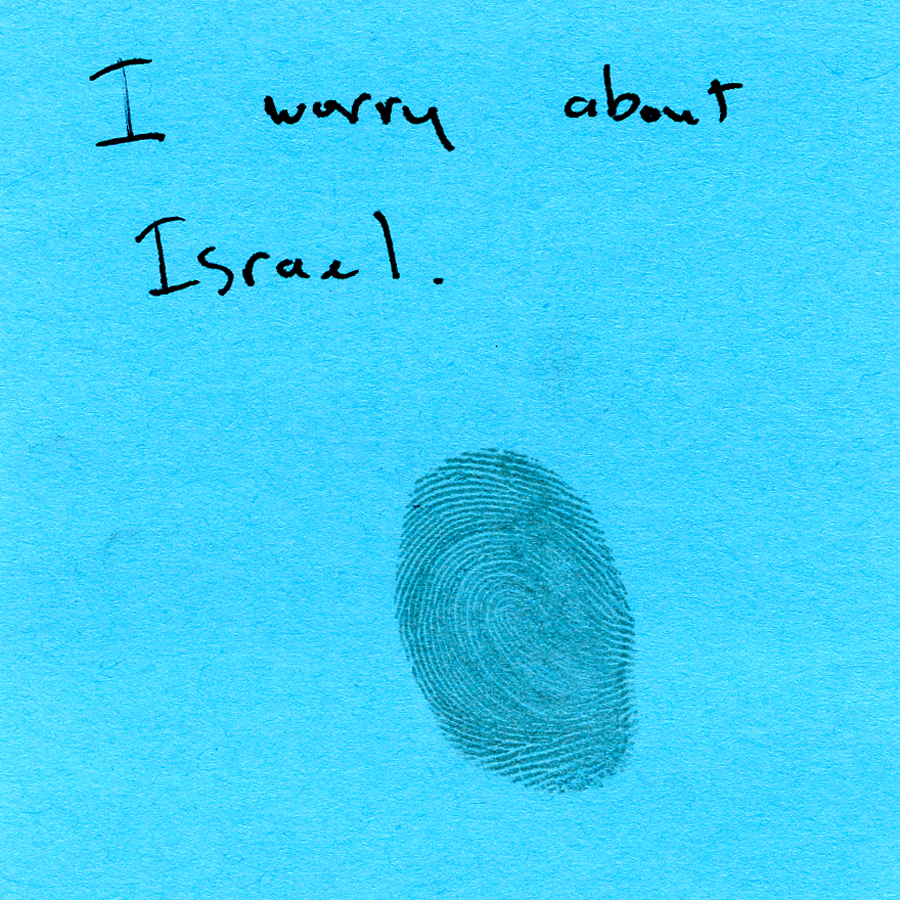 I worry about
Israel.